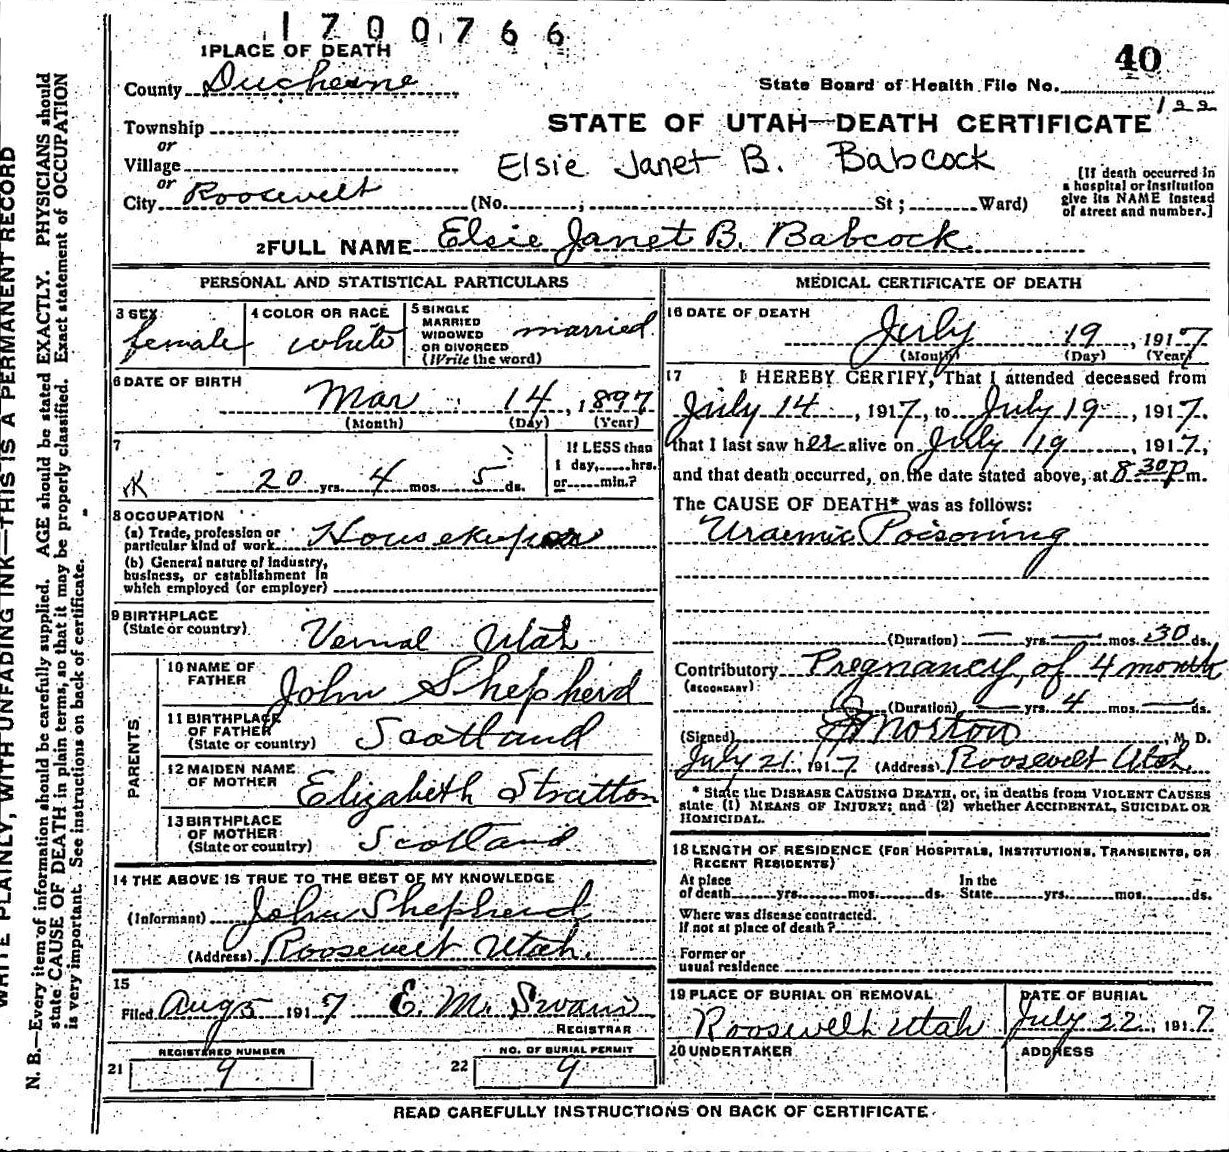 1700766
1 PLACE OF DEATH
40
County Duchesne
State Board of Health File No.
122
Township
or
STATE OF UTAH—DEATH CERTIFICATE
Village
or
Elsie Janet B. Babcock
City Roosevelt (No. ; St ; Ward)
[If death occurred in
a hospital or institution
give its NAME instead
of street and number.]
2 FULL NAME Elsie Janet B. Babcock
PERSONAL AND STATISTICAL PARTICULARS
3 SEX
female
4 COLOR OR RACE
white
5 SINGLE
MARRIED
WIDOWED
OR DIVORCED
(Write the word)
married
6 DATE OF BIRTH
Mar 14, 1897
(Month) (Day) (Year)
7
20 yrs. 4 mos. 5 ds.
If LESS than
1 day, hrs.
or min.?
8 OCCUPATION
(a) Trade, profession or
particular kind of work Housekeeper
(b) General nature of industry,
business, or establishment in
which employed (or employer)
9 BIRTHPLACE
(State or country) Vernal Utah
PARENTS
10 NAME OF
FATHER John Shepherd
11 BIRTHPLACE
OF FATHER
(State or country) Scotland
12 MAIDEN NAME
OF MOTHER Elizabeth Stratton
13 BIRTHPLACE
OF MOTHER
(State or country) Scotland
14 THE ABOVE IS TRUE TO THE BEST OF MY KNOWLEDGE
(Informant) John Shepherd
(Address) Roosevelt Utah.
15
Filed Aug 5 1917 E. M. Swain
REGISTRAR
REGISTERED NUMBER
21 9
NO. OF BURIAL PERMIT
22 9
MEDICAL CERTIFICATE OF DEATH
16 DATE OF DEATH
July 19, 1917
(Month) (Day) (Year)
17 I HEREBY CERTIFY, That I attended deceased from
July 14, 1917, to July 19, 1917.
that I last saw her alive on July 19, 1917,
and that death occurred, on the date stated above, at 8 30 P m.
The CAUSE OF DEATH* was as follows:
Uraemic Poisoning
(Duration) — yrs. — mos. 30 ds.
Contributory Pregnancy, of 4 months
(SECONDARY)
(Duration) — yrs. 4 mos. — ds.
(Signed) Morton M. D.
July 21, 1917 (Address) Roosevelt Utah
* State the DISEASE CAUSING DEATH, or, in deaths from VIOLENT CAUSES
state (1) MEANS OF INJURY; and (2) whether ACCIDENTAL, SUICIDAL OR
HOMICIDAL.
18 LENGTH OF RESIDENCE (FOR HOSPITALS, INSTITUTIONS, TRANSIENTS, OR
RECENT RESIDENTS)
At place
of death yrs. mos. ds.
In the
State yrs. mos. ds.
Where was disease contracted.
If not at place of death?
Former or
usual residence
19 PLACE OF BURIAL OR REMOVAL
Roosevelt Utah
DATE OF BURIAL
July 22, 1917
20 UNDERTAKER
ADDRESS
READ CAREFULLY INSTRUCTIONS ON BACK OF CERTIFICATE.
WRITE PLAINLY, WITH UNFADING INK—THIS IS A PERMANENT RECORD
N. B.—Every item of information should be carefully supplied. AGE should be stated EXACTLY. PHYSICIANS should
state CAUSE OF DEATH in plain terms, so that it may be properly classified. Exact statement of OCCUPATION
is very important. See instructions on back of certificate.